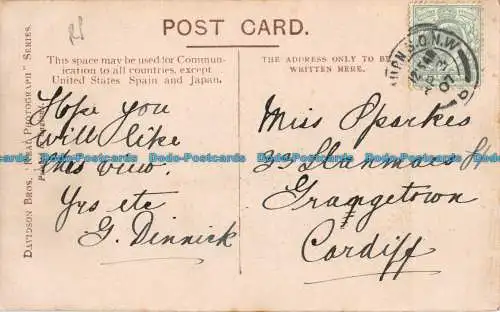 POST CARD.
This space may be used for Commun-
ication to all countries, except
United States Spain and Japan.
THE ADDRESS ONLY TO BE
WRITTEN HERE.
DAVIDSON BROS. "REAL PHOTOGRAPH" SERIES.
Hope you
will like
this view.
Yrs etc
G. Dinnick
Miss Sparkes
33 St
Grangetown
Cardiff
Dodo-Postcards Dodo-Postcards Dodo-Postcards Dodo-Postcards